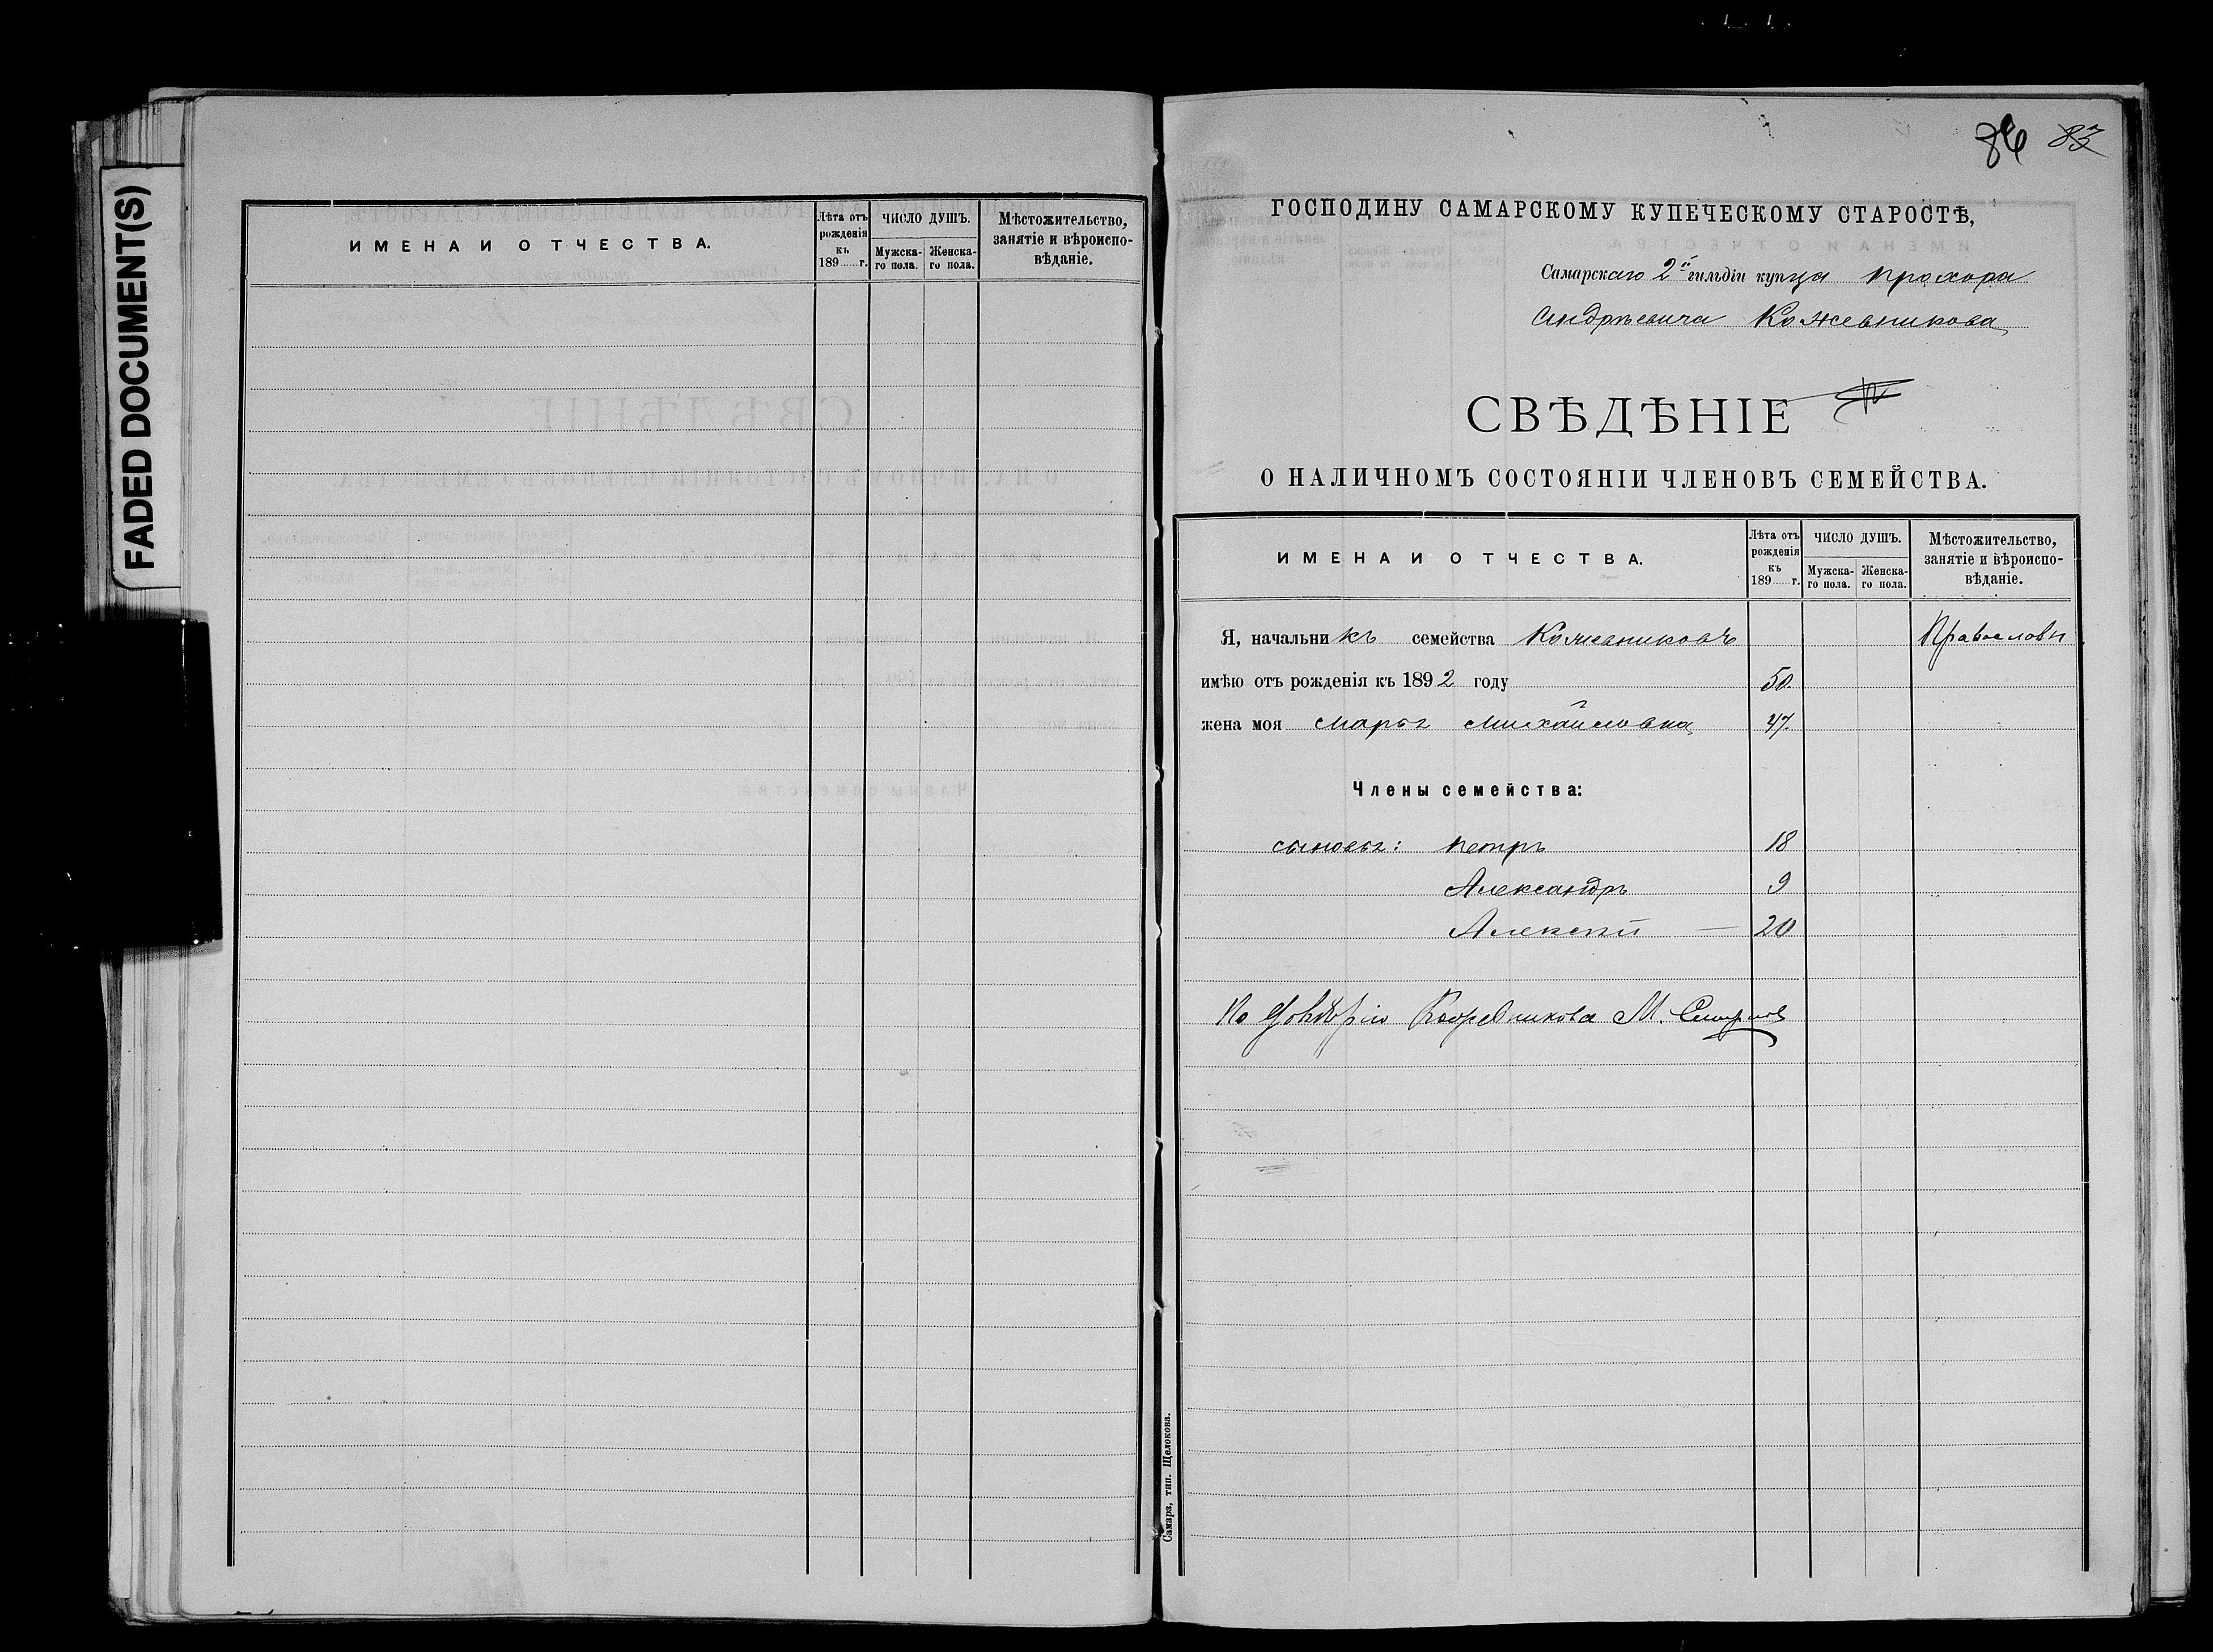 FADED DOCUMENT(S)
ИМЕНА И ОТЧЕСТВА.
Лѣта отъ рожденія къ 189 г.
ЧИСЛО ДУШЪ.
Мужска-го пола.
Женска-го пола.
Мѣстожительство, занятіе и вѣроиспо-вѣданіе.
86 83
ГОСПОДИНУ САМАРСКОМУ КУПЕЧЕСКОМУ СТАРОСТѢ,
Самарскаго 2й гильдіи купца Прохора
Андрѣевича Кожевникова
СВѢДѢНІЕ
О НАЛИЧНОМЪ СОСТОЯНІИ ЧЛЕНОВЪ СЕМЕЙСТВА.
ИМЕНА И ОТЧЕСТВА.
Лѣта отъ рожденія къ 189 г.
ЧИСЛО ДУШЪ.
Мужска-го пола.
Женска-го пола.
Мѣстожительство, занятіе и вѣроиспо-вѣданіе.
Я, начальникъ семейства Кожевниковъ Православн
имѣю отъ рожденія къ 1892 году 50
жена моя Марья Михайловна 47
Члены семейства:
сыновья: Петръ 18
Александръ 9
Алексѣй — 20
По довѣрію Кожевникова М. Смирнов
Самара, тип. Щелокова.